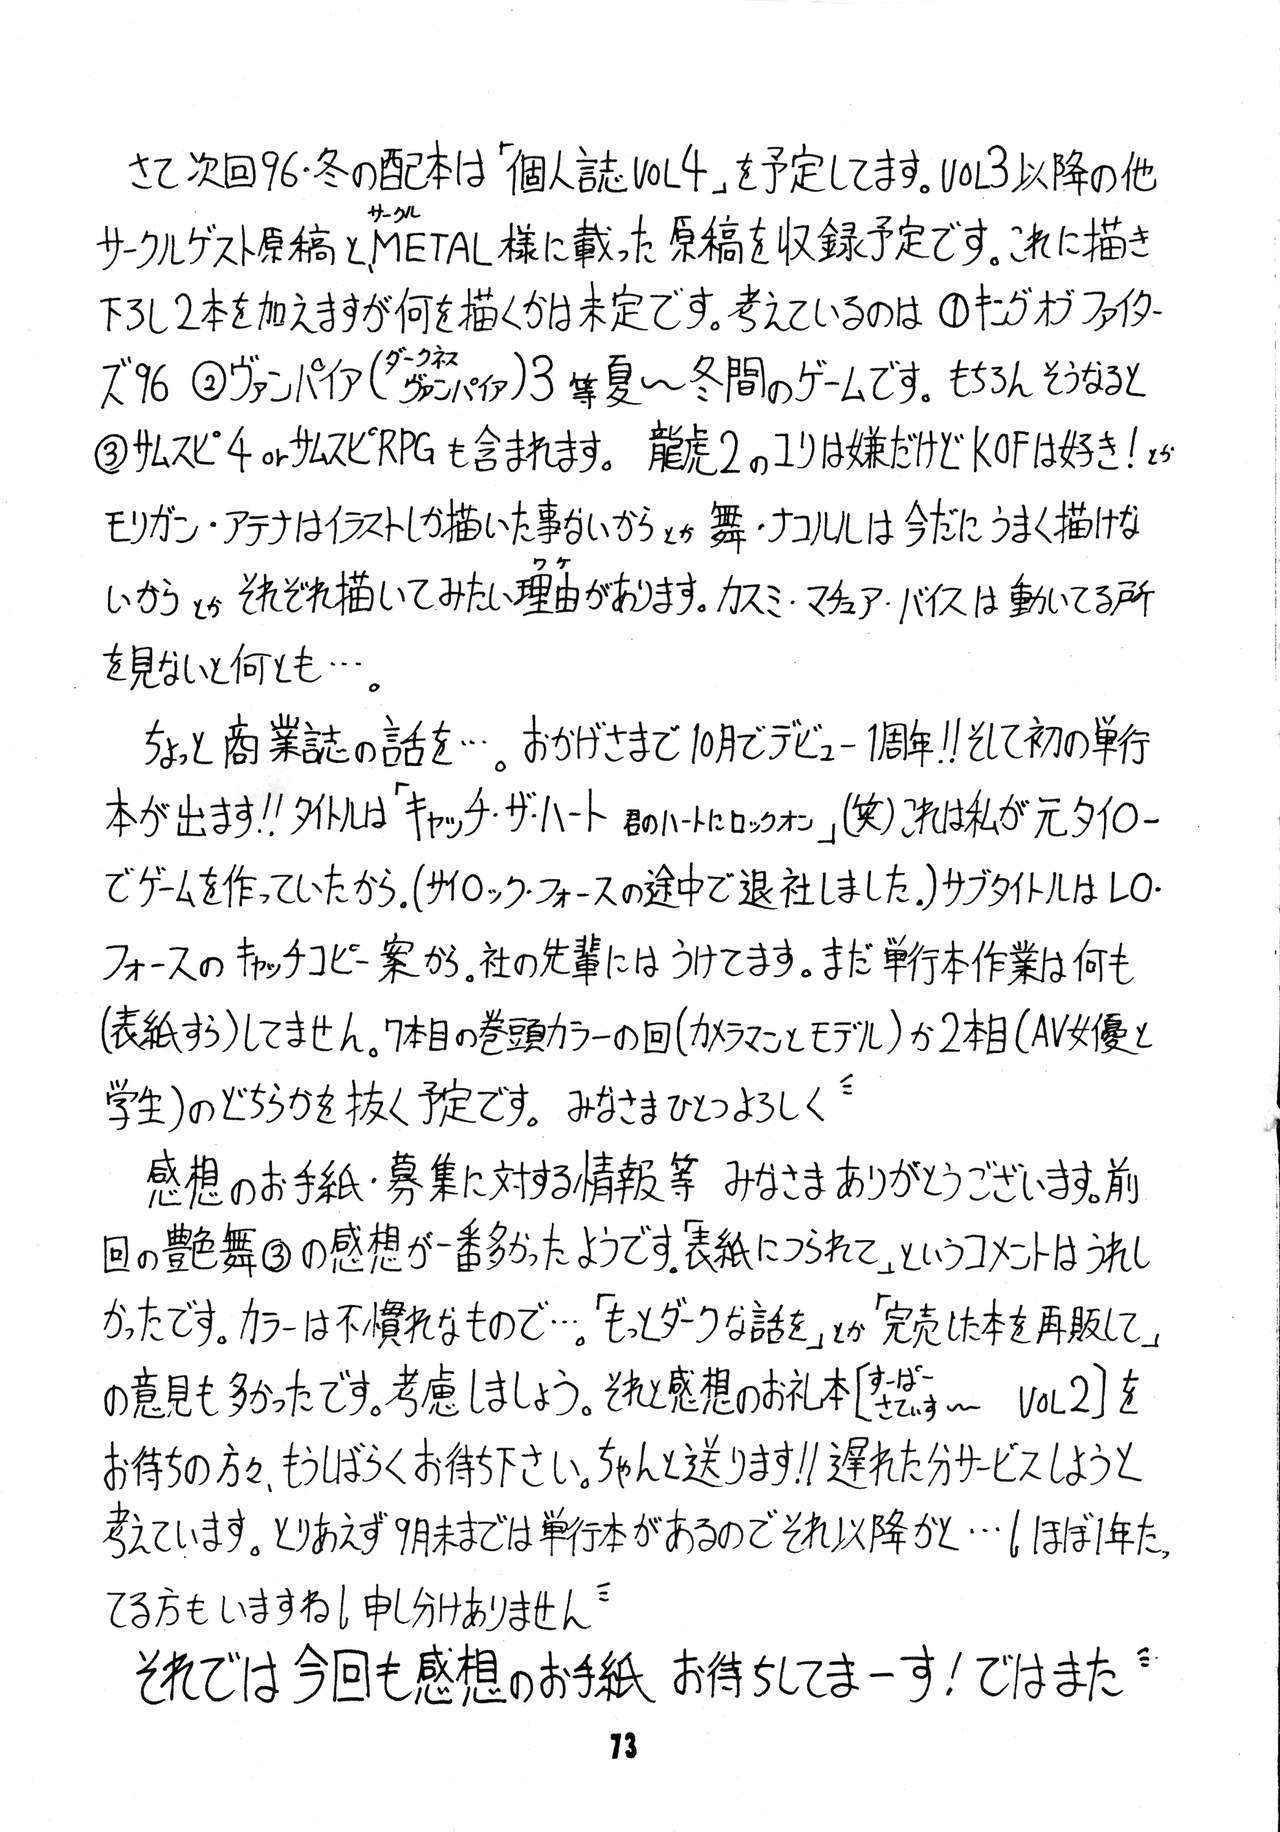 さて次回96・冬の配本は「個人誌VOL4」を予定してます。VOL3以降の他
サークルゲスト原稿と、METAL様に載った原稿を収録予定です。これに描き
サークル
下ろし2本を加えますが何を描くかは未定です。考えているのは ①キングオブファイター
ズ'96 ②ヴァンパイア(ダークネスヴァンパイア)3 等夏〜冬間のゲームです。もちろんそうなると
③サムスピ4 orサムスピRPGも含まれます。 龍虎2のユリは嫌だけどKOFは好き!とか
モリガン・アテナはイラストしか描いた事ないからとか 舞・ナコルルは今だにうまく描けな
いからとか それぞれ描いてみたい理由があります。カスミ・マチュア・バイスは動いてる所
ワケ
を見ないと何とも…。
ちょっと商業誌の話を…。おかげさまで10月でデビュー1周年!!そして初の単行
本が出ます!!タイトルは「キャッチ・ザ・ハート 君のハートにロックオン」(笑)これは私が元タイロー
でゲームを作っていたから。(サイロック・フォースの途中で退社しました。)サブタイトルはLO・
フォースのキャッチコピー案から。社の先輩にはうけてます。まだ単行本作業は何も
(表紙すら)してません。7本目の巻頭カラーの回(カメラマンとモデル)か2本目(AV女優と
学生)のどちらかを抜く予定です。 みなさまひとつよろしく
感想のお手紙・募集に対する情報等 みなさまありがとうございます。前
回の艶舞③の感想が一番多かったようです。「表紙につられて」というコメントはうれし
かったです。カラーは不慣れなもので…。「もっとダークな話を」とか「完売した本を再販して」
の意見も多かったです。考慮しましょう。それと感想のお礼本[すーぱーさてぃす〜 VOL2]を
お待ちの方々、もうしばらくお待ち下さい。ちゃんと送ります!!遅れた分サービスしようと
考えています。とりあえず9月末までは単行本があるのでそれ以降かと…しほぼ1年た。
てる方もいますねし 申し分けありません
それでは今回も感想のお手紙 お待ちしてまーす!ではまた
73